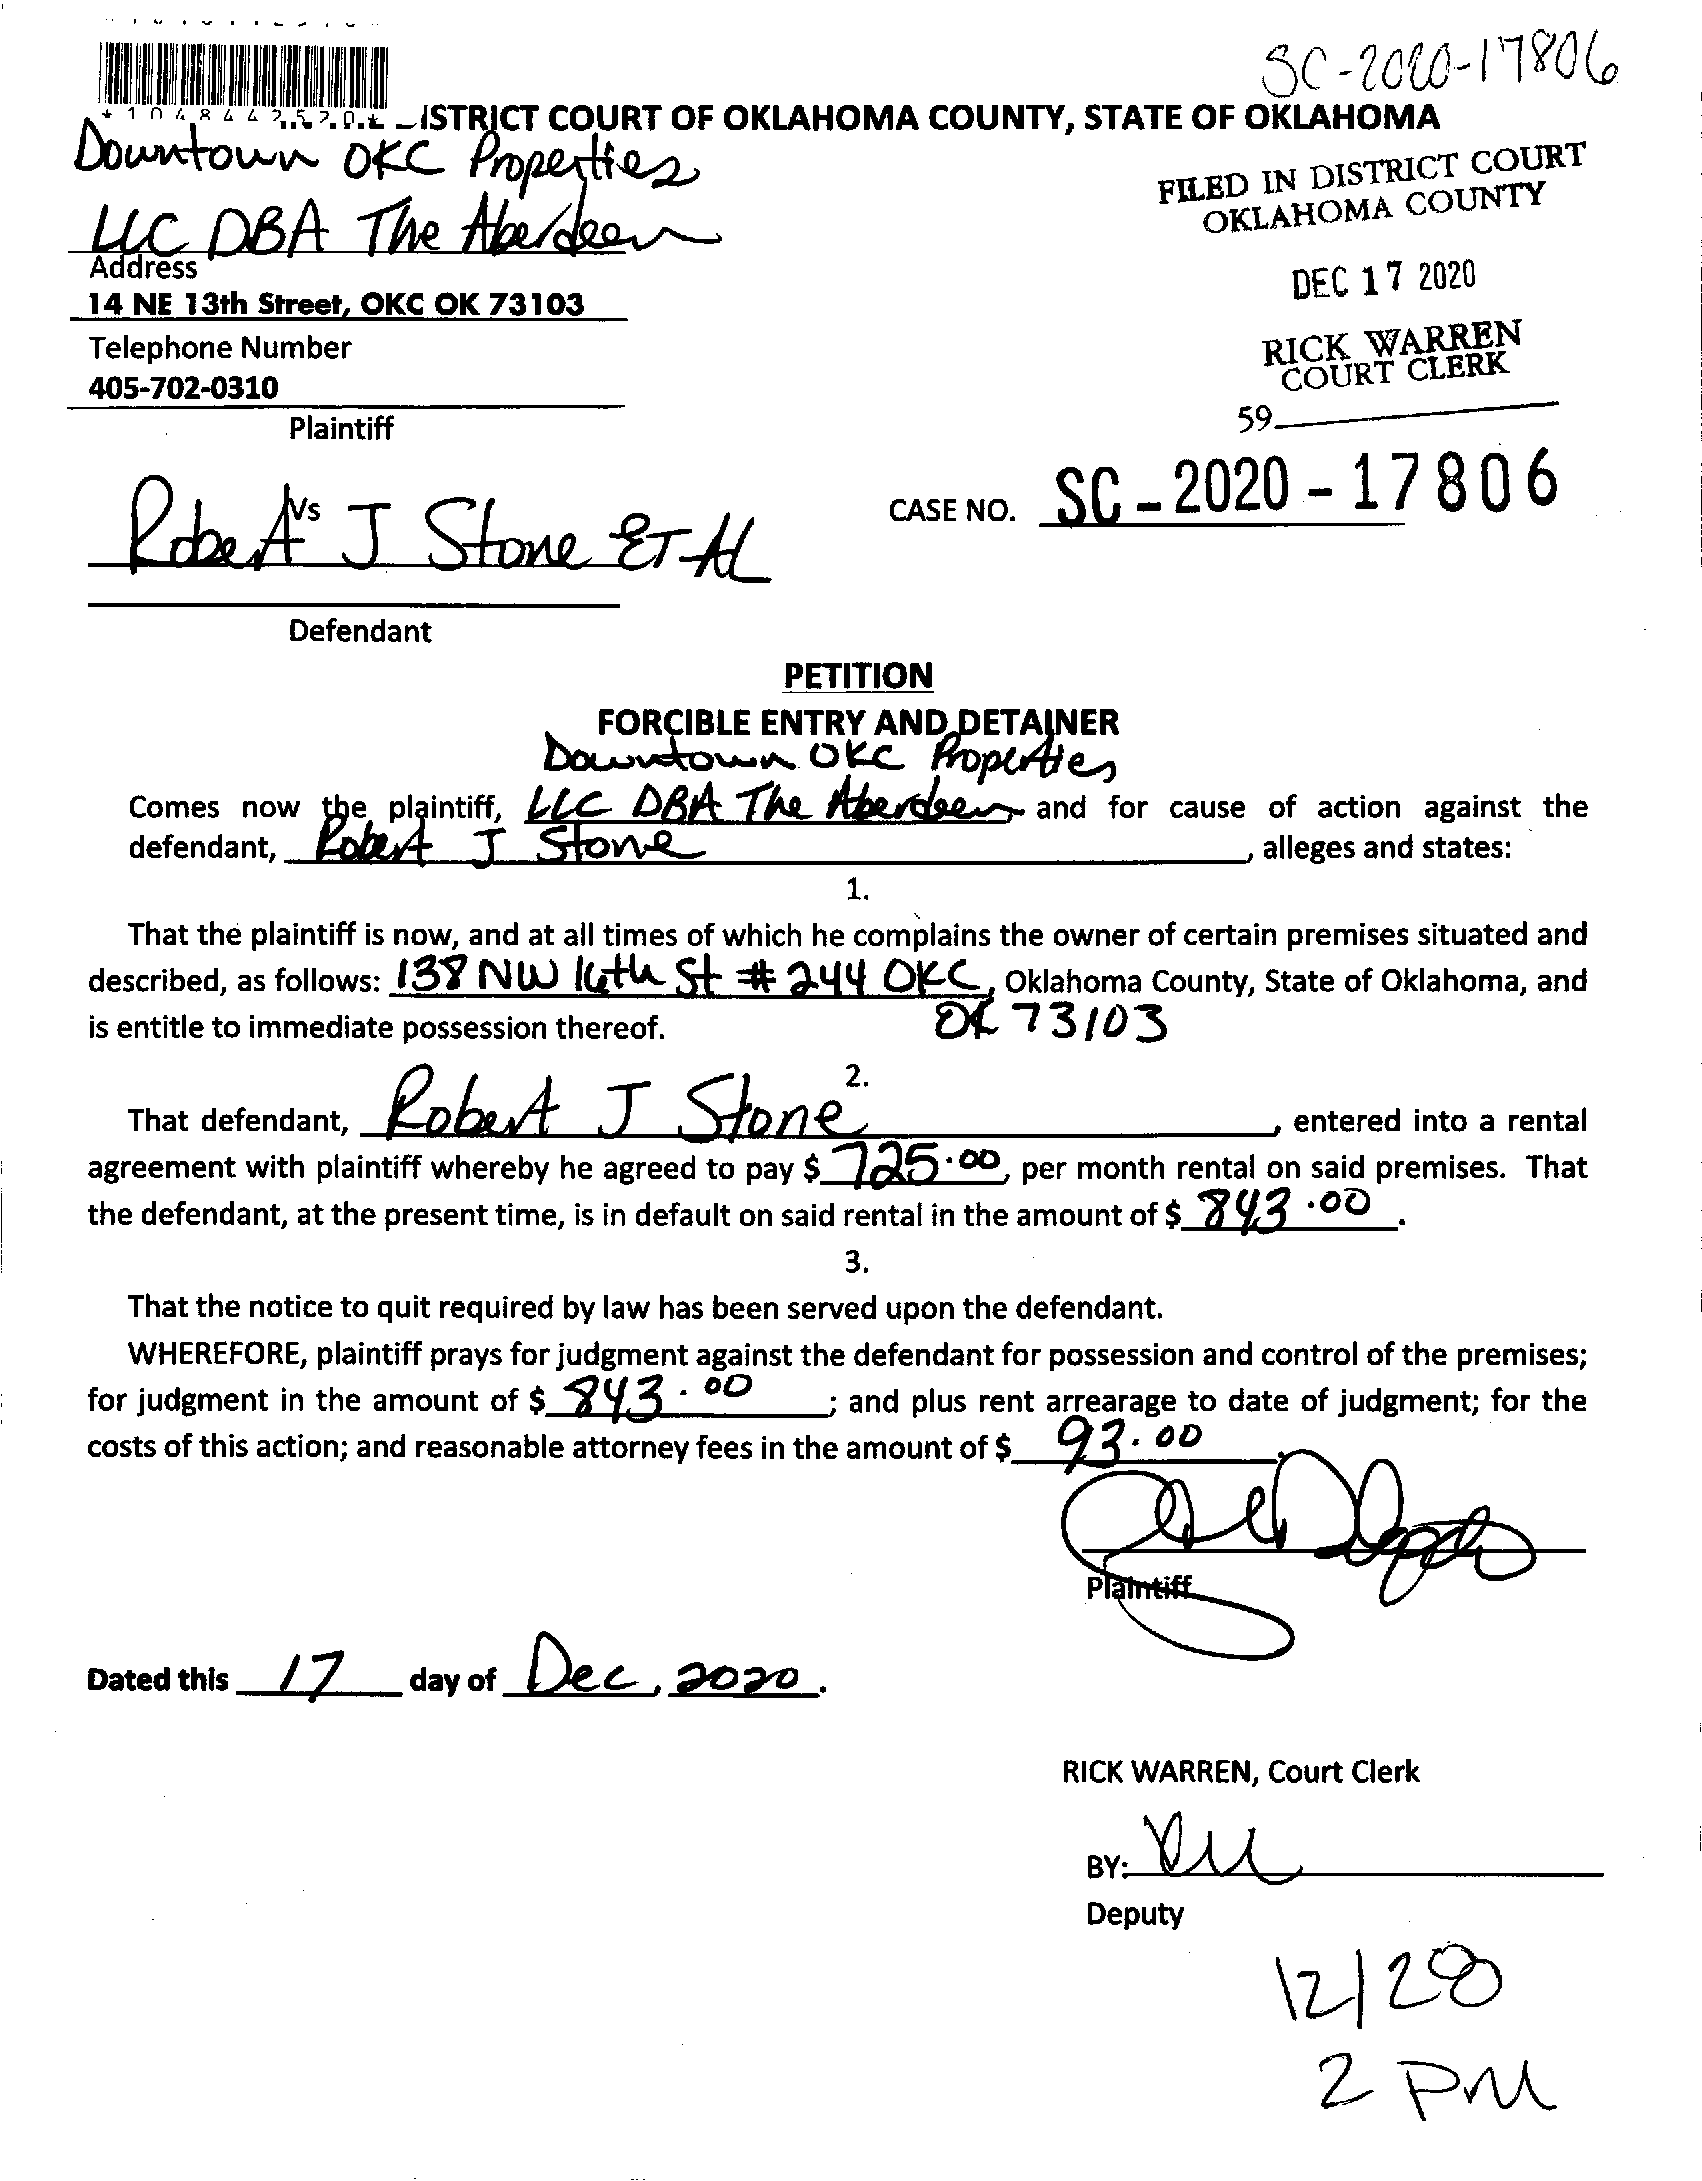 SC-2020-17806
*1048442520*
ISTRICT COURT OF OKLAHOMA COUNTY, STATE OF OKLAHOMA
Downtown OKC Properties
LLC DBA The Aberdeen
FILED IN DISTRICT COURT
OKLAHOMA COUNTY
Address
14 NE 13th Street, OKC OK 73103
DEC 17 2020
Telephone Number
RICK WARREN
COURT CLERK
405-702-0310
59
Plaintiff
Vs
CASE NO. SC-2020-17806
Robert J Stone ET AL
Defendant
PETITION
FORCIBLE ENTRY AND DETAINER
Downtown OKC Properties
Comes now the plaintiff, LLC DBA The Aberdeen and for cause of action against the
defendant, Robert J Stone, alleges and states:
1.
That the plaintiff is now, and at all times of which he complains the owner of certain premises situated and
described, as follows: 138 NW 16th St #244 OKC, Oklahoma County, State of Oklahoma, and
is entitle to immediate possession thereof. OK 73103
2.
That defendant, Robert J Stone, entered into a rental
agreement with plaintiff whereby he agreed to pay $ 725.00, per month rental on said premises. That
the defendant, at the present time, is in default on said rental in the amount of $ 843.00.
3.
That the notice to quit required by law has been served upon the defendant.
WHEREFORE, plaintiff prays for judgment against the defendant for possession and control of the premises;
for judgment in the amount of $ 843.00; and plus rent arrearage to date of judgment; for the
costs of this action; and reasonable attorney fees in the amount of $ 93.00.
Plaintiff
Dated this 17 day of Dec, 2020.
RICK WARREN, Court Clerk
BY:
Deputy
12/28
2 PM